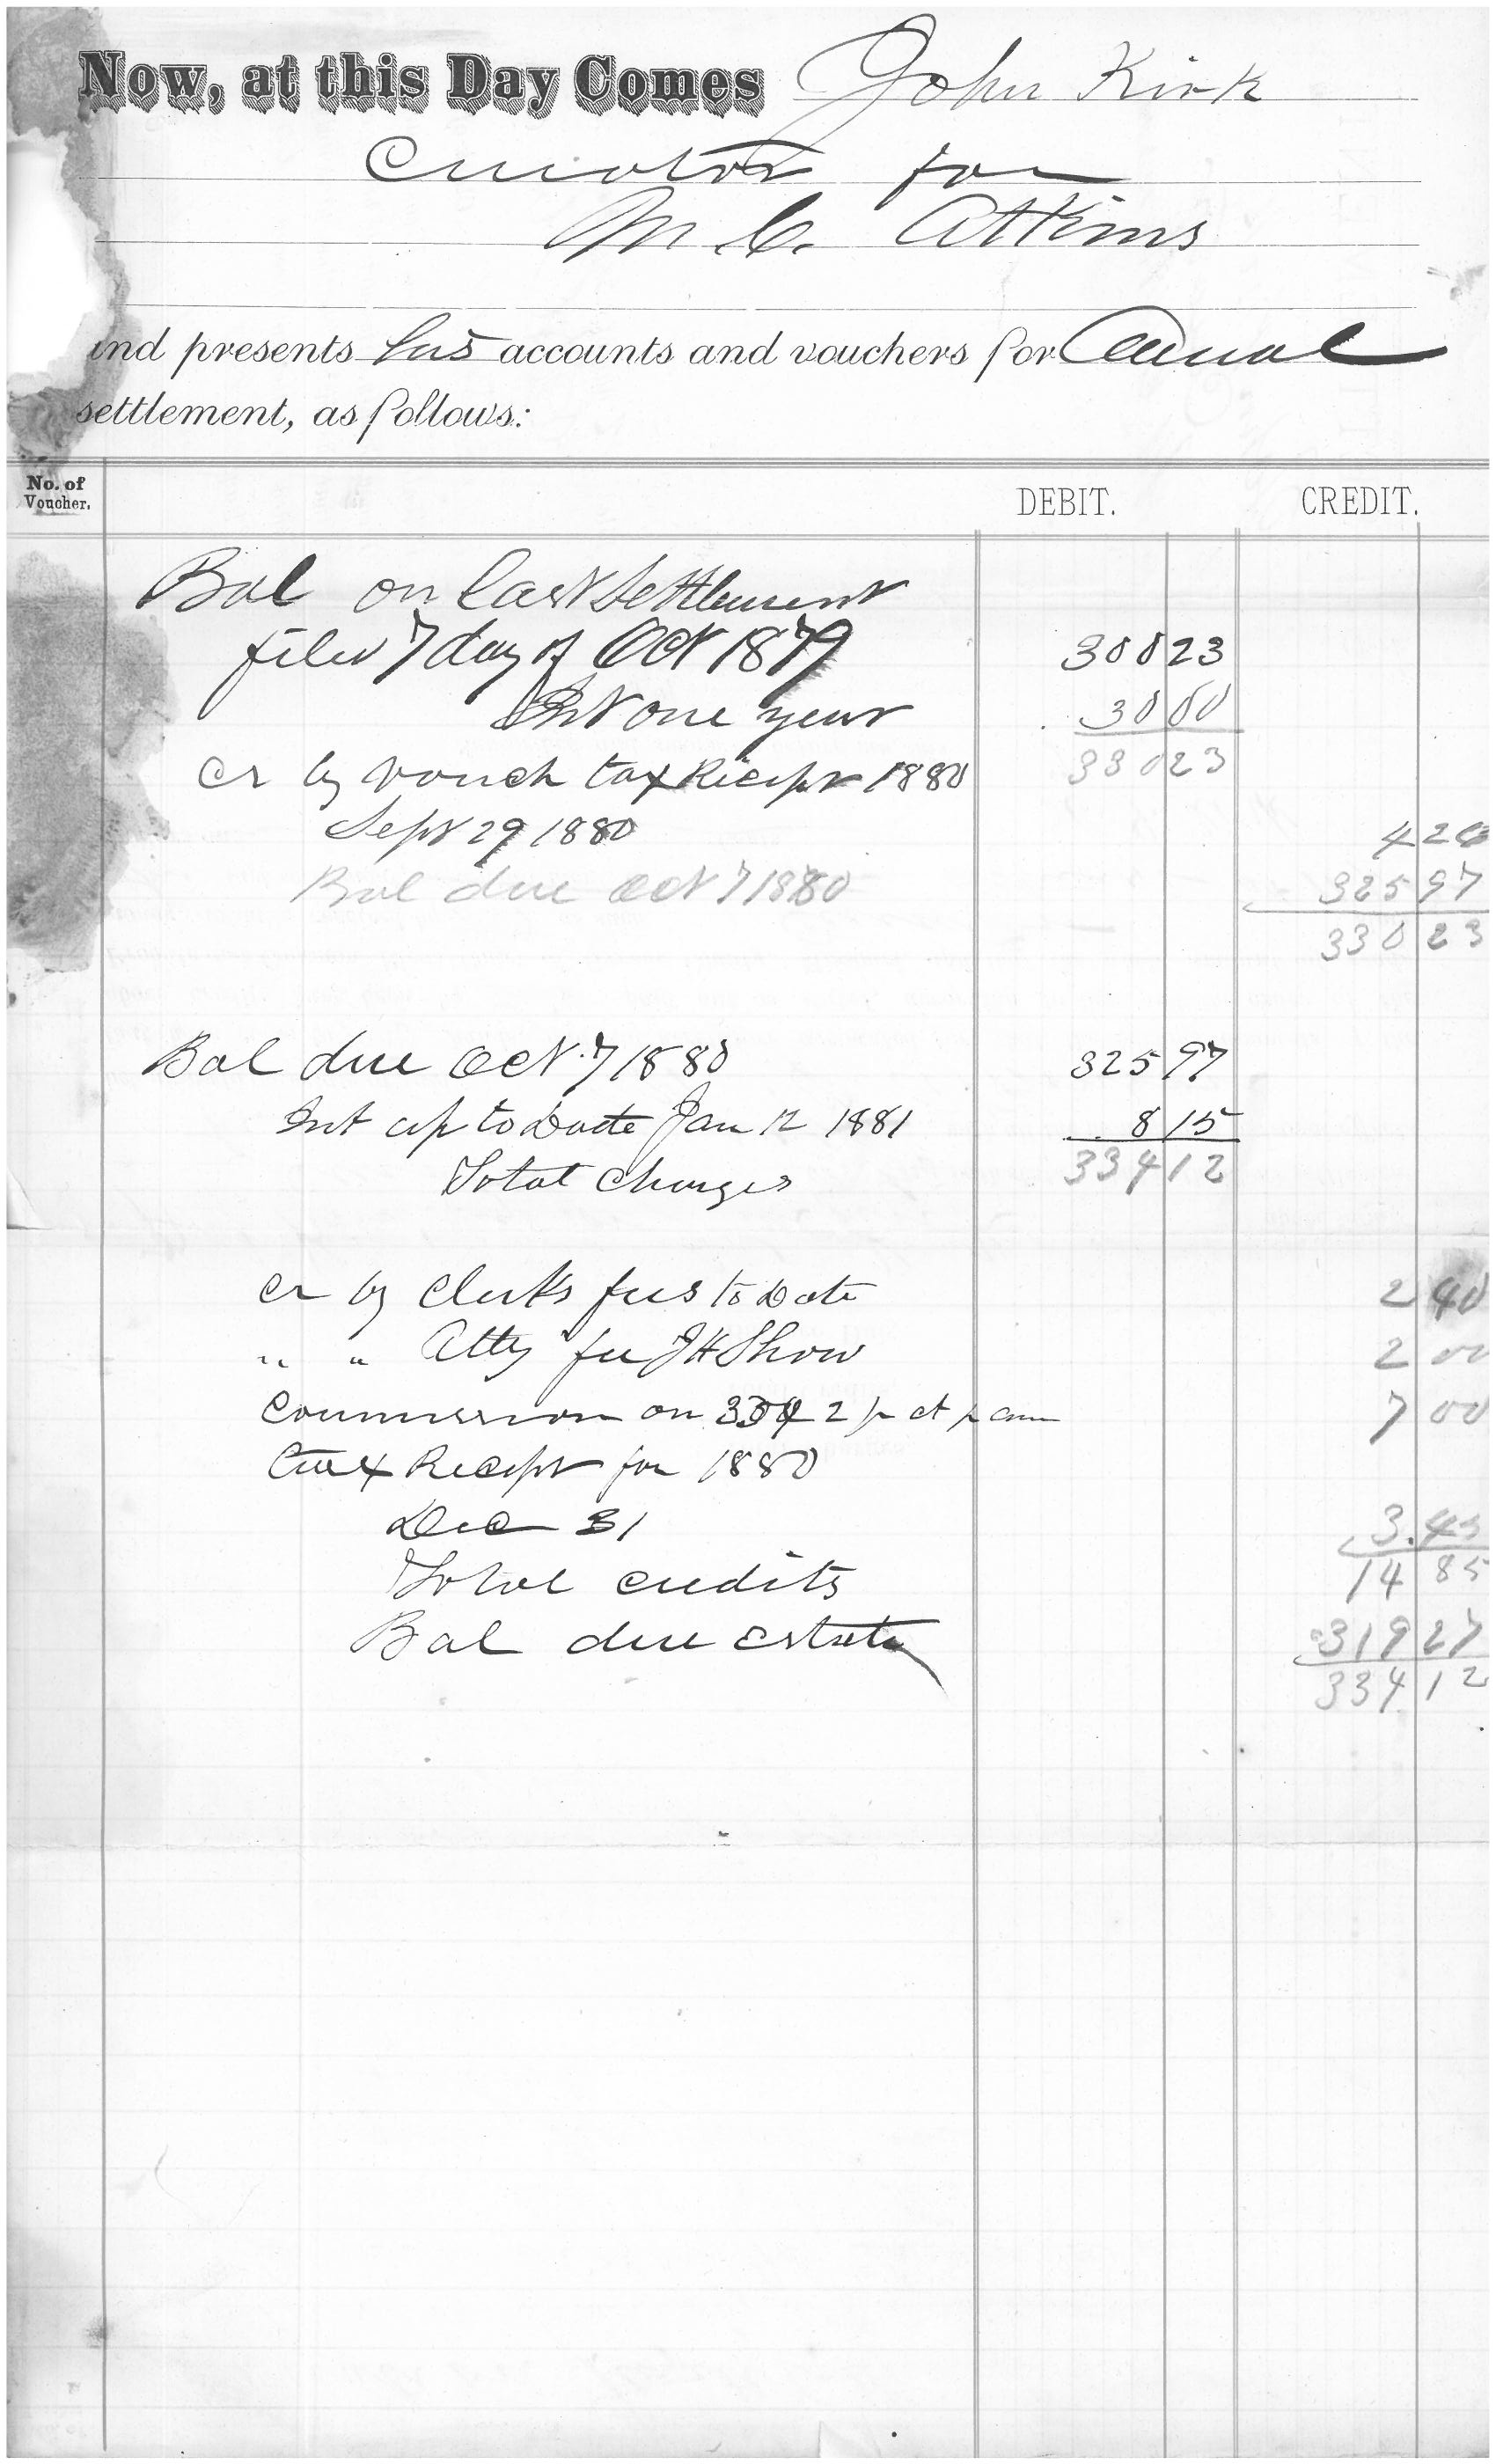 Now, at this Day Comes John Kirk
Curator for
M. C. Atkins
and presents his accounts and vouchers for Anual
settlement, as follows:
No. of Voucher. DEBIT. CREDIT.
Bal on last settlement
filed 7 day of Oct 1879 300 23
Int one year 30 00
Cr by vouch tax Recipt 1880 330 23
Sept 29 1880 4 26
Bal due Oct 7 1880 325 97
330 23
Bal due Oct 7 1880 325 97
Int up to Date Jan 12 1881 8 15
Total Charges 334 12
Cr by Clerks fees to Date 2 40
" " Atty fee J H Show 2 00
Commission on 2 p ct p ann 7 00
tax Recipt for 1880
Dec 31 3.45
Total credits 14 85
Bal due Estate 319 27
334 12